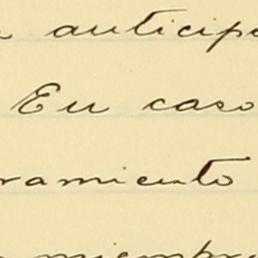 anticip
En caso
ramiento
siempr